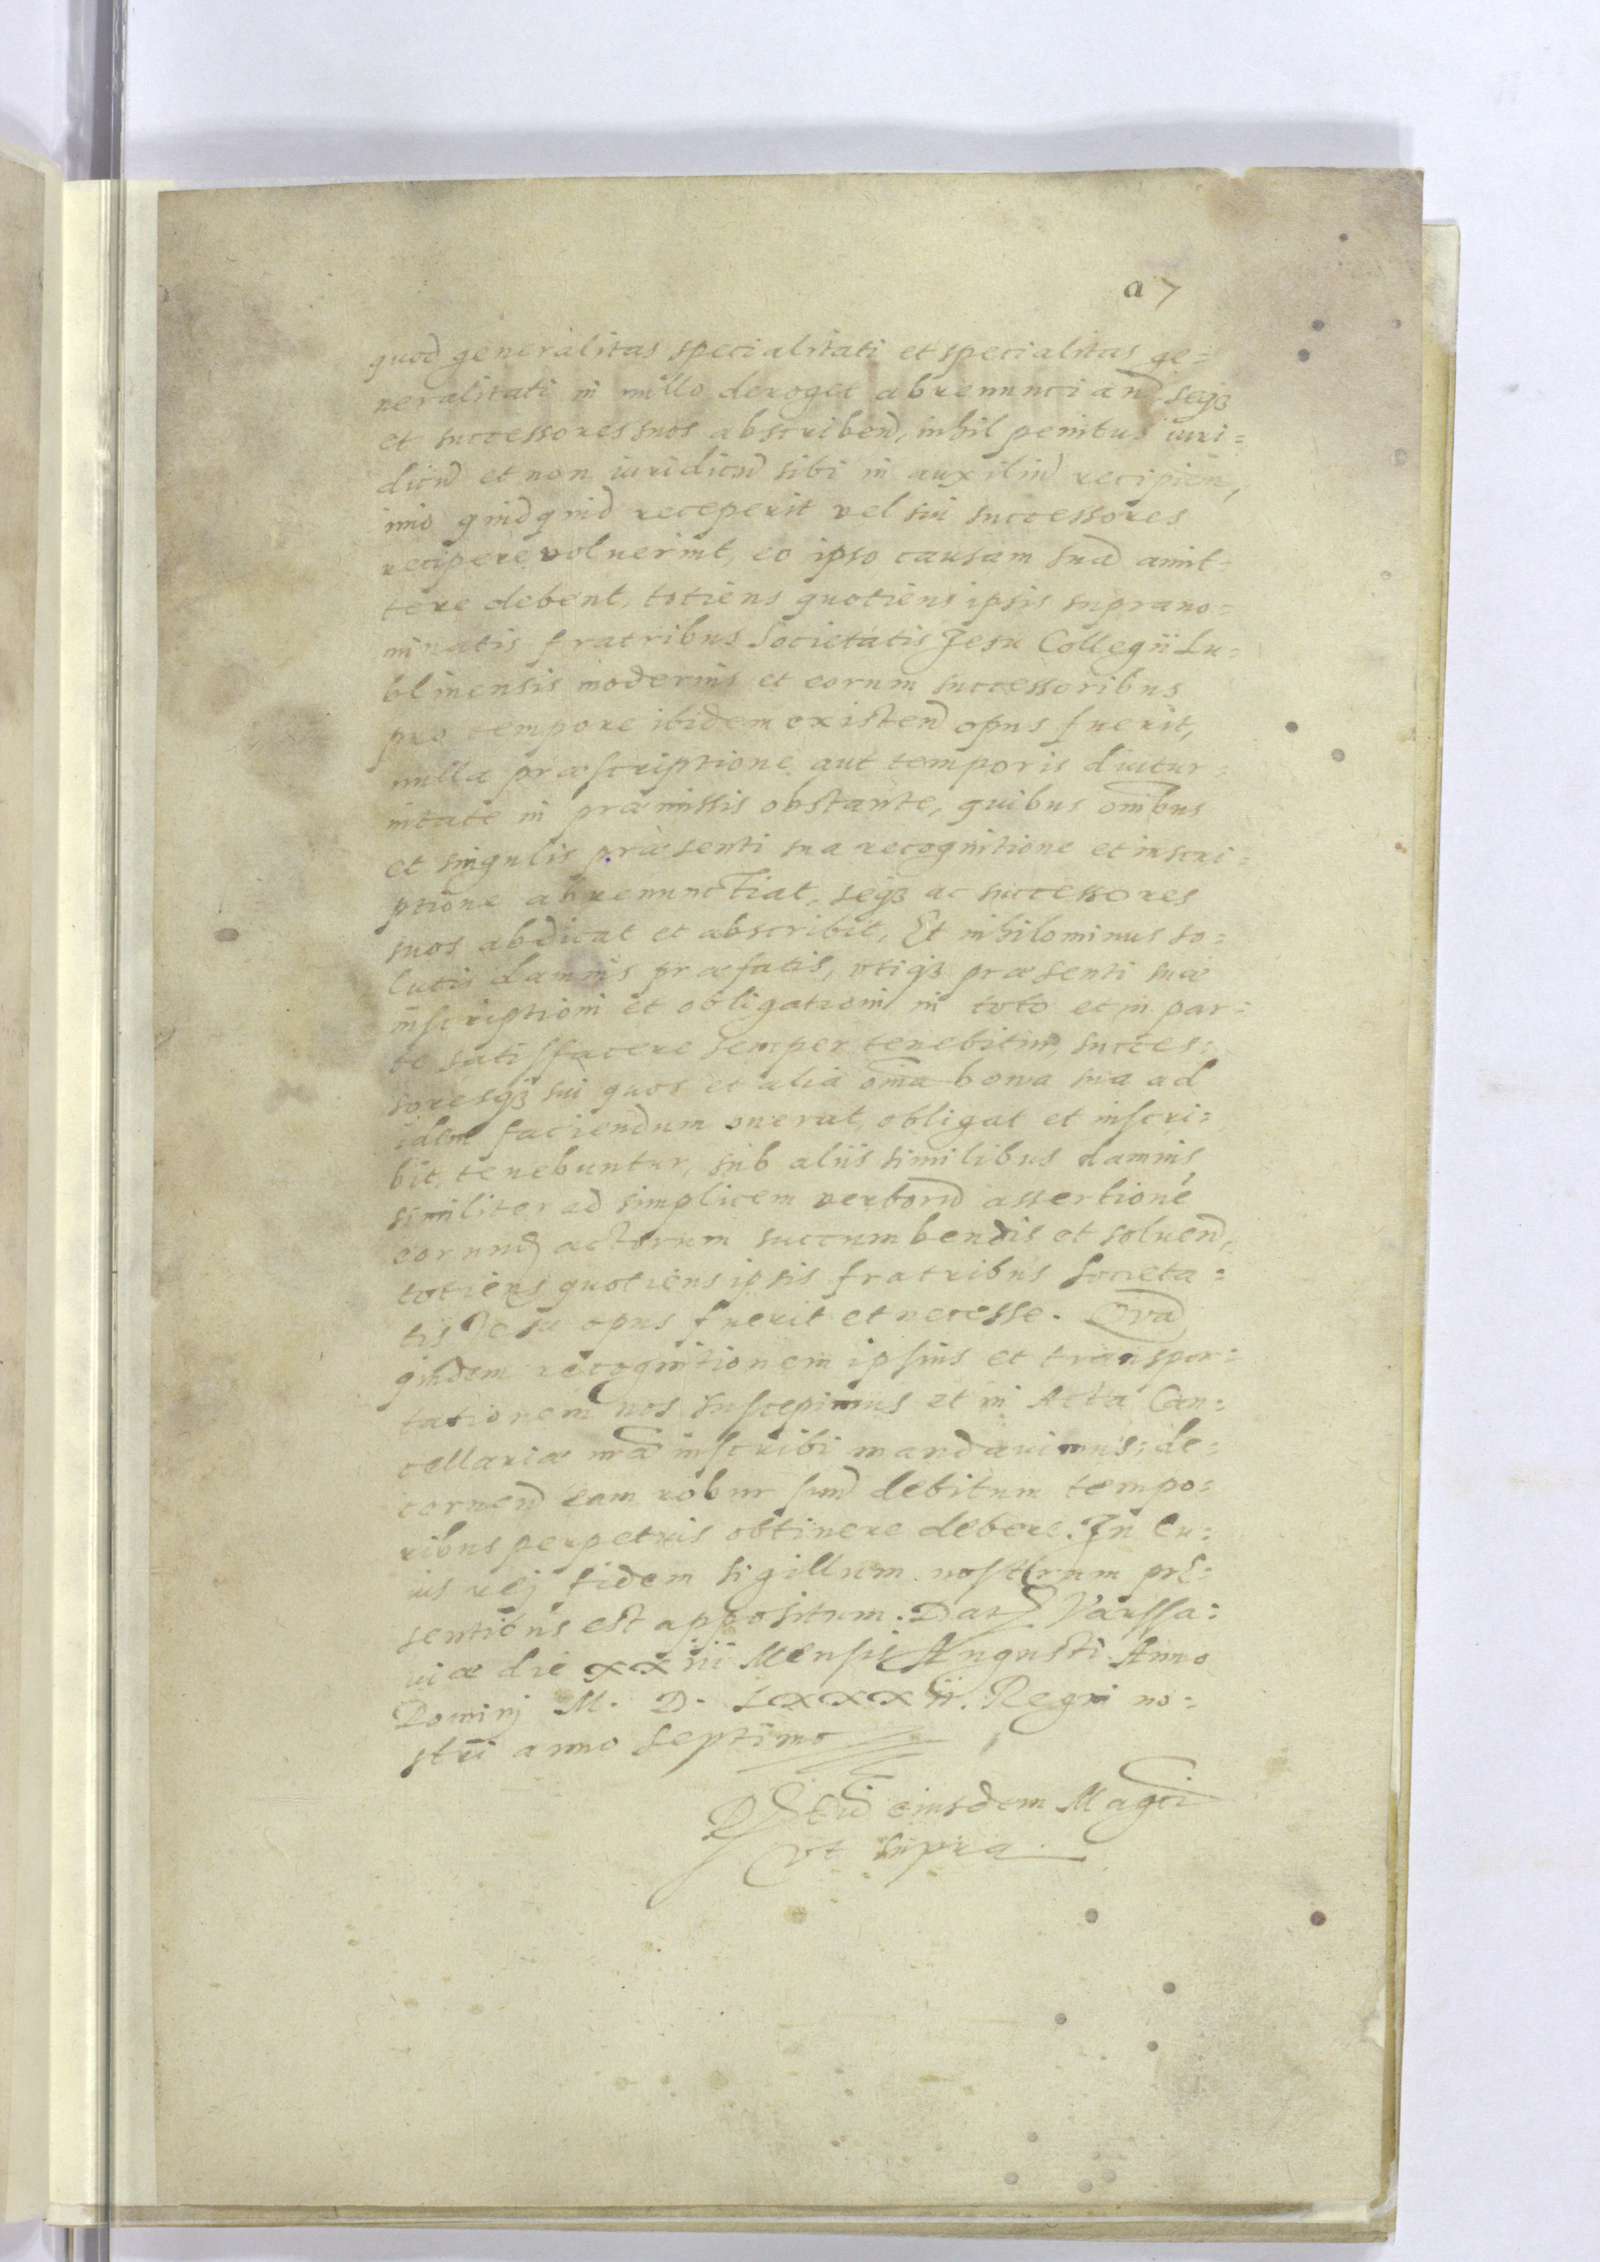 a 7
quod generalitas specialitati et specialitas ge=
neralitati in nullo deroget abrenunciand seqз
et successores suos abscribend, nihil penitus iuri=
dicũ et non iuridicũ sibi in auxiliũ recipien,
imo quidquid receperit vel sui successores
recipere voluerint, eo ipso causam suã amit=
tere debent, totiens quotiens ipsis suprano=
minatis fratribus Societatis Jesu Collegii Lu=
blinensis modernis et eorum successoribus
pro tempore ibidem existend opus fuerit,
nulla præscriptione aut temporis diutur=
nitate in præmissis obstante, quibus omibus
et singulis præsenti sua recognitione et inscri=
ptione abrenunctiat, seqз ac successores
suos abdicat et abscribit, Et nihilominus so=
lutis damnis præfatis, vtiqз præsenti suæ
inscriptioni et obligationi in toto et in par=
te satisfacere semper tenebitur, succes=
soresqз sui quos et alia oĩa bona sua ad
idem faciendum onerat, obligat et inscri=
bit, tenebuntur, sub aliis similibus damnis
similiter ad simplicem verborũ assertionẽ
eorund actorum succumbendis et soluend,
totiens quotiens ipsis fratribus Societa=
tis Jesu opus fuerit et necesse.
quidem recognitionem ipsius et transpor=
tationem nos suscepimus et in Acta Can=
cellariæ nrã inscribi mandauimus: de=
cernend eam robur suũ debitum tempo=
ribus perpetuis obtinere debere. In cu=
ius rej fidem sigillum nostrum præ=
sentibus est appositum. Dat Varssa=
uiæ die xxiii Mensis Augusti Anno
Dominj M. D. LXXXii. Regni no=
stri anno septimo
eiusdem Magci
vt supra